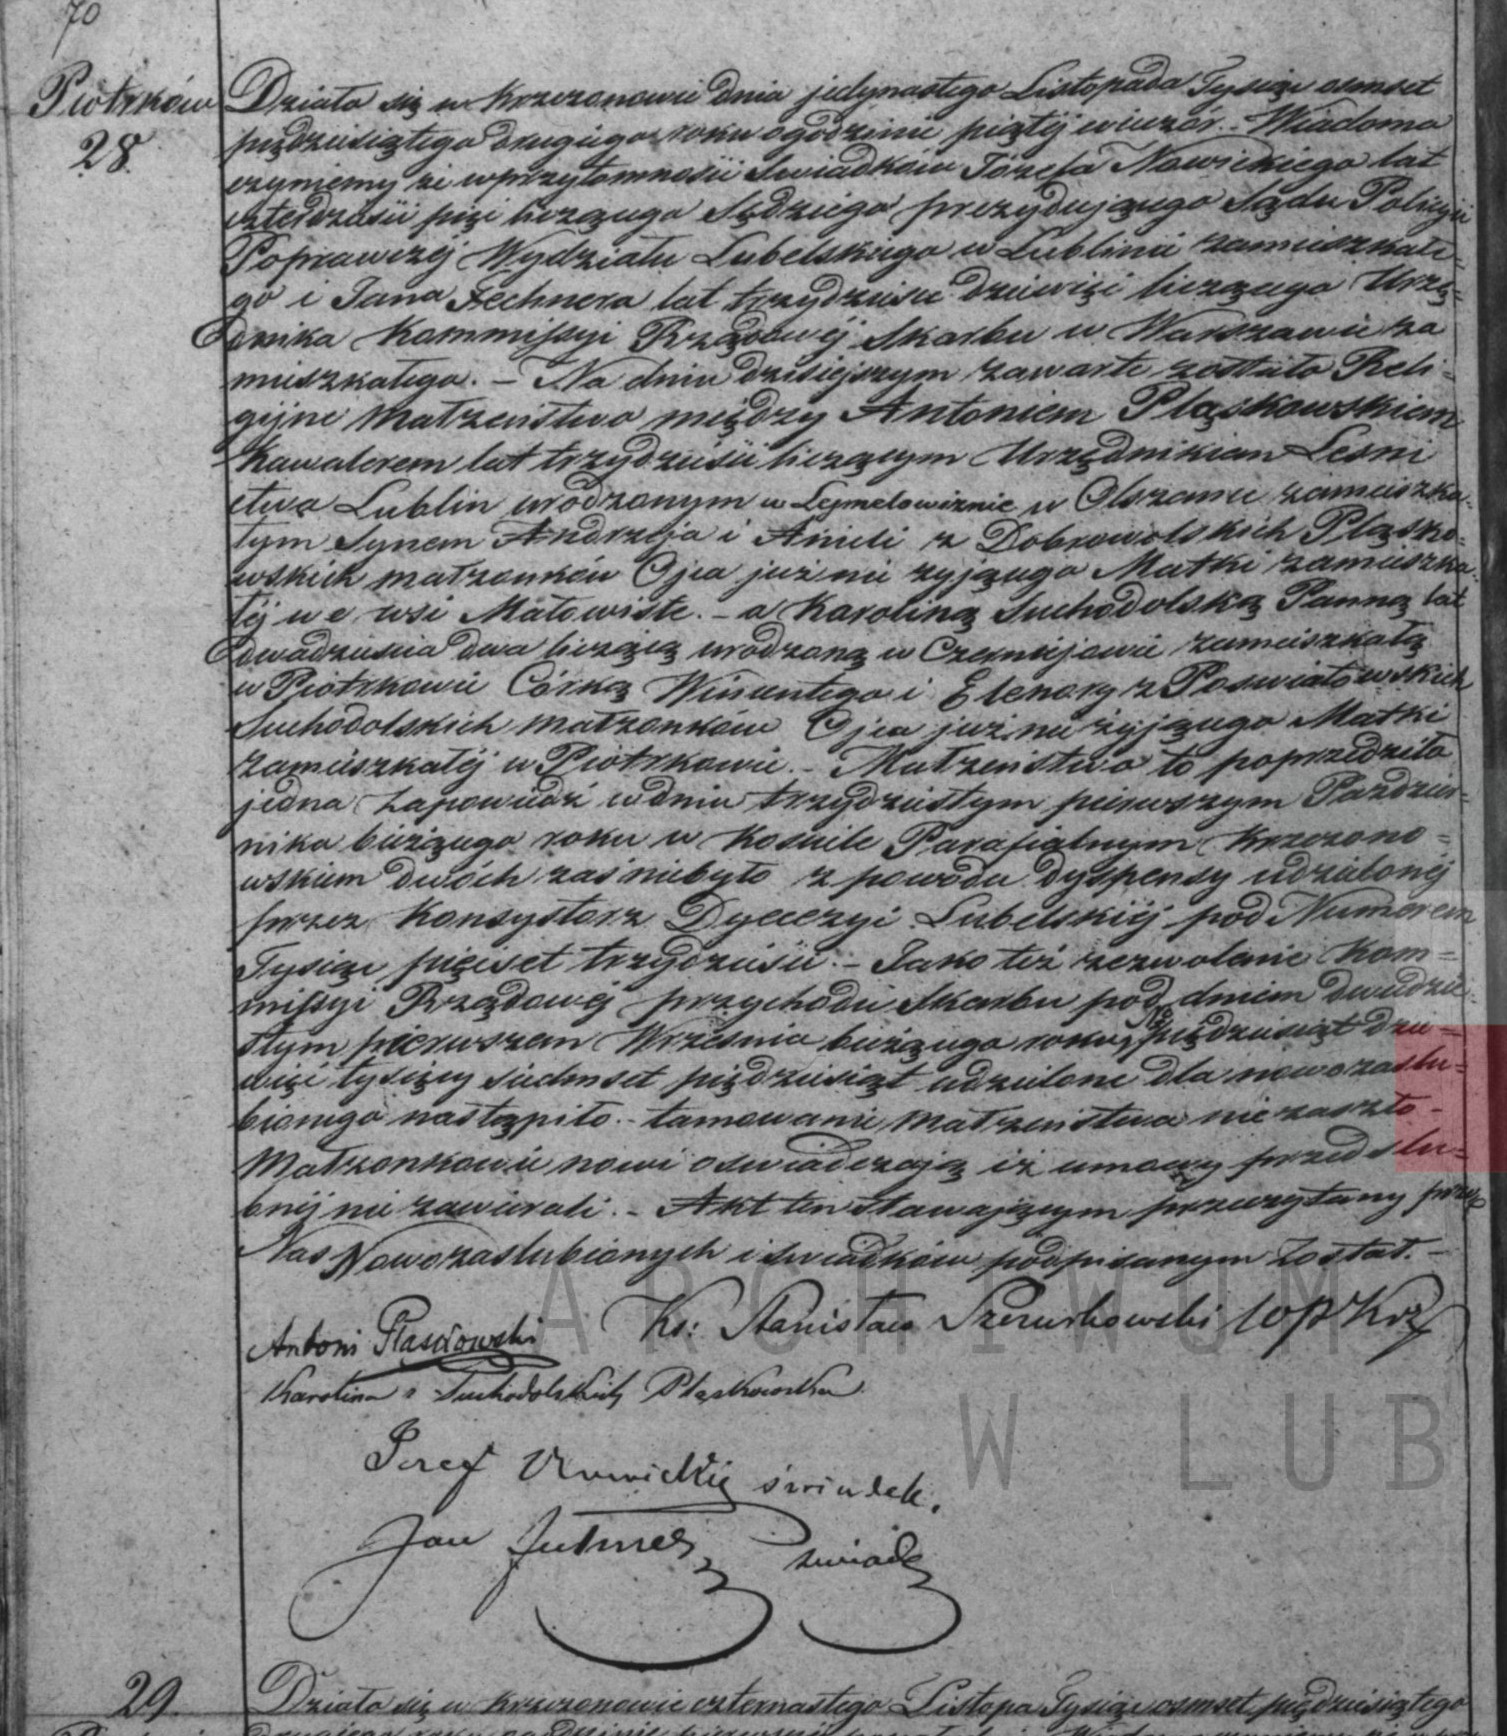 70
Piotrków
28
Działo się w Krzczonowie dnia jedynastego Listopada Tysiąc osmset
pięćdziesiątego drugiego roku o godzinie piątéj wieczór. – Wiadomo
czyniemy że w przytomności Swiadków Józefa Nowickiego lat
czterdzieści pięć liczącego Sędziego prezydującego Sądu Policyi
Poprawczéj Wydziału Lubelskiego w Lublinie zamieszkałe=
go i Jana Fechnera lat trzydzieści dziewięć liczącego Urzę=
dnika Kommissyi Rządowéj Skarbu w Warszawie za
mieszkałego. – Na dniu dzisiejszym zawarte zostało Reli=
gijne Małżeństwo między Antonim Pląskowskiem
Kawalerem lat trzydzieści liczącym Urzędnikiem Leśni
ctwa Lublin urodzonym w Lejmelowiznie w Olszance zamieszka=
łym Synem Andrzeja i Anieli z Dobrowolskich Pląsko=
wskich małżonków Ojca już nie żyjącego Matki zamieszka=
łéj we wsi Małowiste. – a Karoliną Suchodolską Panną lat
dwadzieścia dwa liczącą urodzoną w Czerniejowie zamieszkałą
w Piotrkowie Córką Wincentego i Elenory z Poswiatowskich
Suchodolskich małżonków Ojca już nie żyjącego Matki
zamieszkałéj w Piotrkowie. – Małżeństwo to poprzedziła
jedna zapowiedź w dniu trzydziestym pierwszym Paździer=
nika bieżącego roku w Kosciele Parafialnym Krzczono=
wskiem dwóch zaś niebyło z powodu dyspensy udzielonéj
przez Konsystorz Dyecezyi Lubelskiéj pod Numerem
Tysiąc pięćset trzydzieści. – Jako też zezwolenie Kom=
missyi Rządowéj przychodu Skarbu pod dniem dwudzie=
stym pierwszem Września bieżącego roku No pięćdziesiąt dzie=
więć tysięcy siedmset pięćdziesiąt udzielone dla nowozaślu=
bionego nastąpiło. – tamowanie małżeństwa nie zaszło –
Małżonkowie nowi oświadczają iż umowy przedślu=
bnéj nie zawierali. – Akt ten stawającym przeczytany przez
Nas Nowozaslubionych i swiadków podpisanym został. –
Antoni Pląskowski Ks: Stanisław Szczurkowski
Karolina z Suchodolskich Pląskowska
Józef Nowicki świadek.
Jan Fechner świadek
29.
Działo się w Krzczonowie czternastego Listopa Tysiąc osmset pięćdziesiątego
ARCHIWUM
W LUB